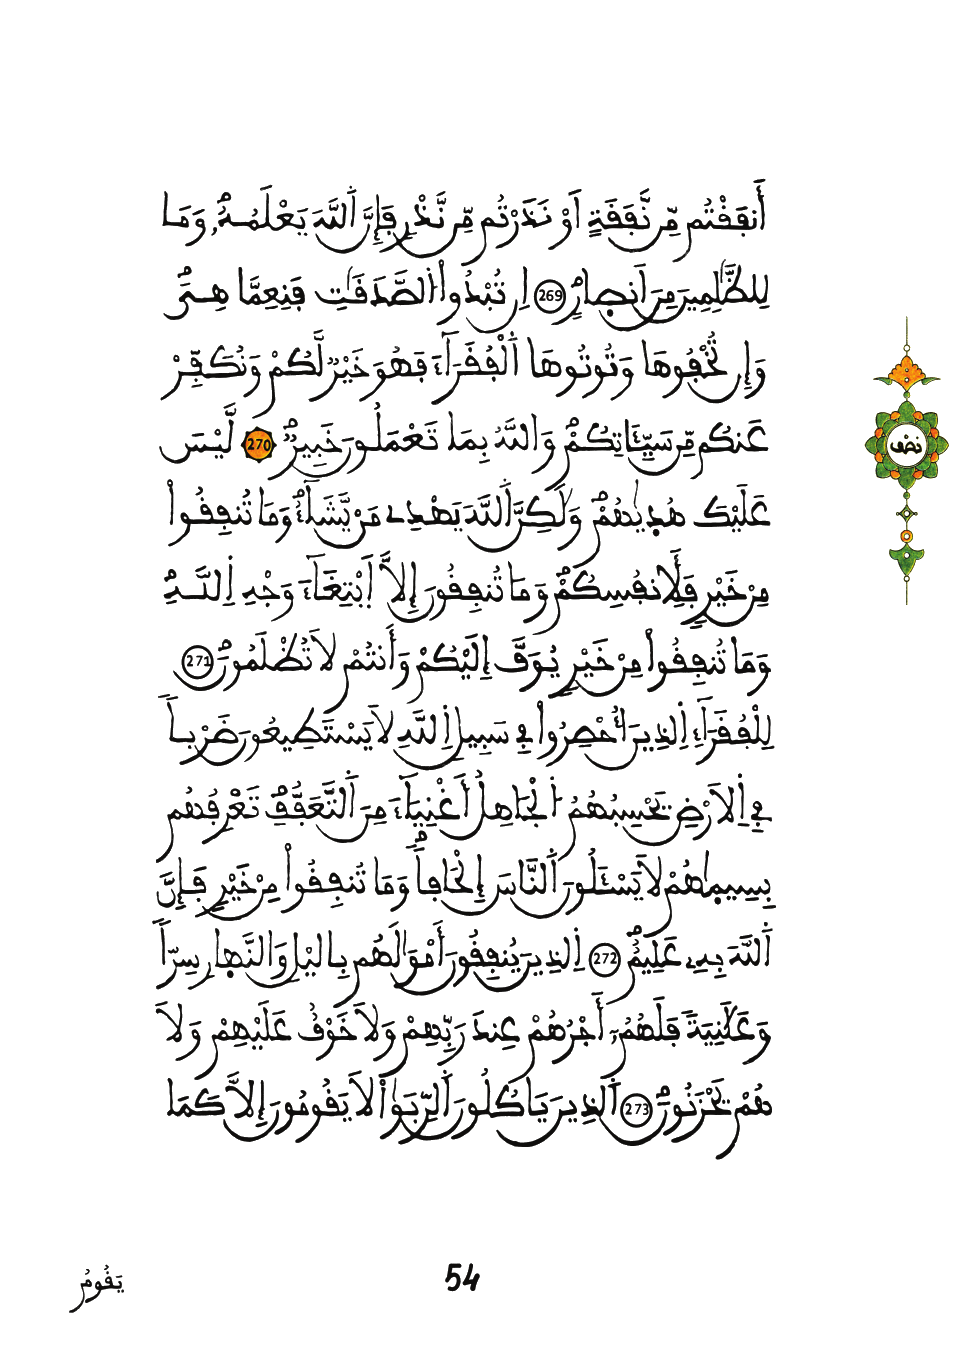 أَنفَقْتُم مِّن نَّفَقَةٍ أَوْ نَذَرْتُم مِّن نَّذْرٍ فَإِنَّ اَ۬للَّهَ يَعْلَمُهُۥ وَمَا
لِلظَّٰلِمِينَ مِنَ اَنص۪ارٍ 269 اِن تُبْدُواْ اُ۬لصَّدَقَٰتِ فَنِعِمَّا هِيَ
وَإِن تُخْفُوهَا وَتُوتُوهَا اَ۬لْفُقَرَآءَ فَهُوَ خَيْرٞ لَّكُمْ وَنُكَفِّرْ
عَنكُم مِّن سَيِّـَٔاتِكُمْ وَاللَّهُ بِمَا تَعْمَلُونَ خَبِيرٞ 270 لَّيْسَ
عَلَيْكَ هُد۪يٰهُمْ وَلَٰكِنَّ اَ۬للَّهَ يَهْدِے مَنْ يَّشَآءُ وَمَا تُنفِقُواْ
مِنْ خَيْرٍ فَلِأَنفُسِكُمْ وَمَا تُنفِقُونَ إِلَّا اَ۪بْتِغَآءَ وَجْهِ اِ۬للَّهِ
وَمَا تُنفِقُواْ مِنْ خَيْرٍ يُوَفَّ إِلَيْكُمْ وَأَنتُمْ لَا تُظْلَمُونَ 271
لِلْفُقَرَآءِ اِ۬لذِينَ أُحْصِرُواْ فِي سَبِيلِ اِ۬للَّهِ لَا يَسْتَطِيعُونَ ضَرْباٗ
فِي اِ۬لَارْضِ يَحْسِبُهُمُ اُ۬لْجَاهِلُ أَغْنِيَآءَ مِنَ اَ۬لتَّعَفُّفِ تَعْرِفُهُم
بِسِيم۪اهُمْ لَا يَسْـَٔلُونَ اَ۬لنَّاسَ إِلْحَافاٗ وَمَا تُنفِقُواْ مِنْ خَيْرٍ فَإِنَّ
اَ۬للَّهَ بِهِۦ عَلِيمٌ 272 اِ۬لذِينَ يُنفِقُونَ أَمْوَٰلَهُم بِاليْلِ وَالنَّه۪ارِ سِرّاٗ
وَعَلَٰنِيَةٗ فَلَهُمُۥٓ أَجْرُهُمْ عِندَ رَبِّهِمْ وَلَا خَوْفٌ عَلَيْهِمْ وَلَا
هُمْ يَحْزَنُونَ 273 اَ۬لذِينَ يَاكُلُونَ اَ۬لرِّبَوٰاْ لَا يَقُومُونَ إِلَّا كَمَا
نصف
يَقُومُ
54